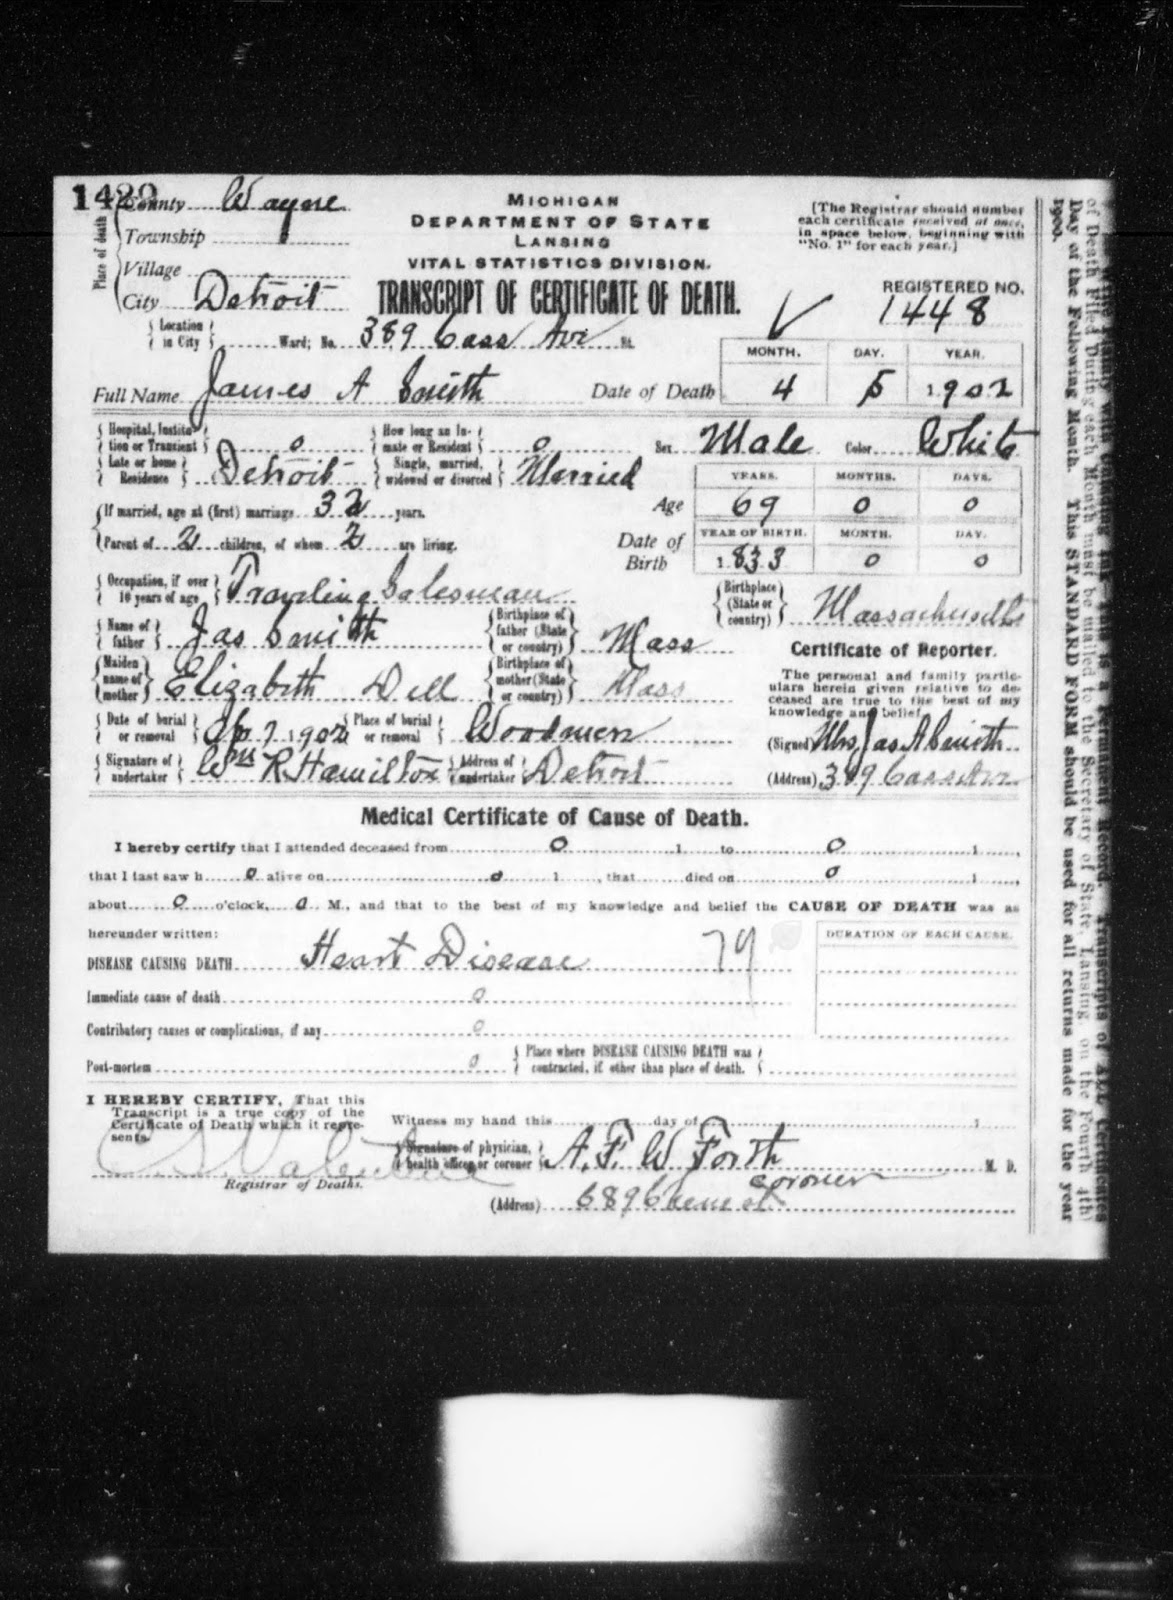 1429
Place of death
County Wayne
Township
Village
City Detroit
MICHIGAN
DEPARTMENT OF STATE
LANSING
VITAL STATISTICS DIVISION.
TRANSCRIPT OF CERTIFICATE OF DEATH.
[The Registrar should number
each certificate received of once,
in space below, beginning with
"No. 1" for each year.]
REGISTERED NO.
1448
Location in City Ward; No. 389 Cass Ave St.
Full Name James A Smith
Date of Death
MONTH. DAY. YEAR.
4 5 1902
Hospital, Institution or Transient 0 How long an Inmate or Resident 0 Sex Male Color White
Late or home Residence Detroit Single, married, widowed or divorced Married
Age
YEARS. MONTHS. DAYS.
69 0 0
If married, age at (first) marriage 32 years.
Parent of 2 children, of whom 2 are living.
Date of Birth
YEAR OF BIRTH. MONTH. DAY.
1833 0 0
Occupation, if over 10 years of age Traveling Salesman Birthplace (State or country) Massachusetts
Name of father Jas Smith Birthplace of father (State or country) Mass
Maiden name of mother Elizabeth Dell Birthplace of mother (State or country) Mass
Date of burial or removal Ap 7 1902 Place of burial or removal Woodmere
Signature of undertaker Wm R. Hamilton Address of undertaker Detroit
Certificate of Reporter.
The personal and family partic-
ulars herein given relative to de-
ceased are true to the best of my
knowledge and belief.
(Signed) Mrs Jas A Smith
(Address) 389 Cass Ave
Medical Certificate of Cause of Death.
I hereby certify that I attended deceased from 0 1 to 0 1 ,
that I last saw h 0 alive on 0 1 , that died on 0 1 ,
about 0 o'clock, 0 M., and that to the best of my knowledge and belief the CAUSE OF DEATH was as
hereunder written:
DURATION OF EACH CAUSE.
DISEASE CAUSING DEATH Heart Disease 79
Immediate cause of death 0
Contributory causes or complications, if any 0
Post-mortem 0 Place where DISEASE CAUSING DEATH was contracted, if other than place of death.
I HEREBY CERTIFY, That this
Transcript is a true copy of the
Certificate of Death which it repre-
sents.
Registrar of Deaths.
Witness my hand this day of 1
Signature of physician, health officer or coroner A. F. W Forth M. D.
coroner
(Address)
Day of the Following Month. This STANDARD FORM should be used for all returns made for the year
1900.